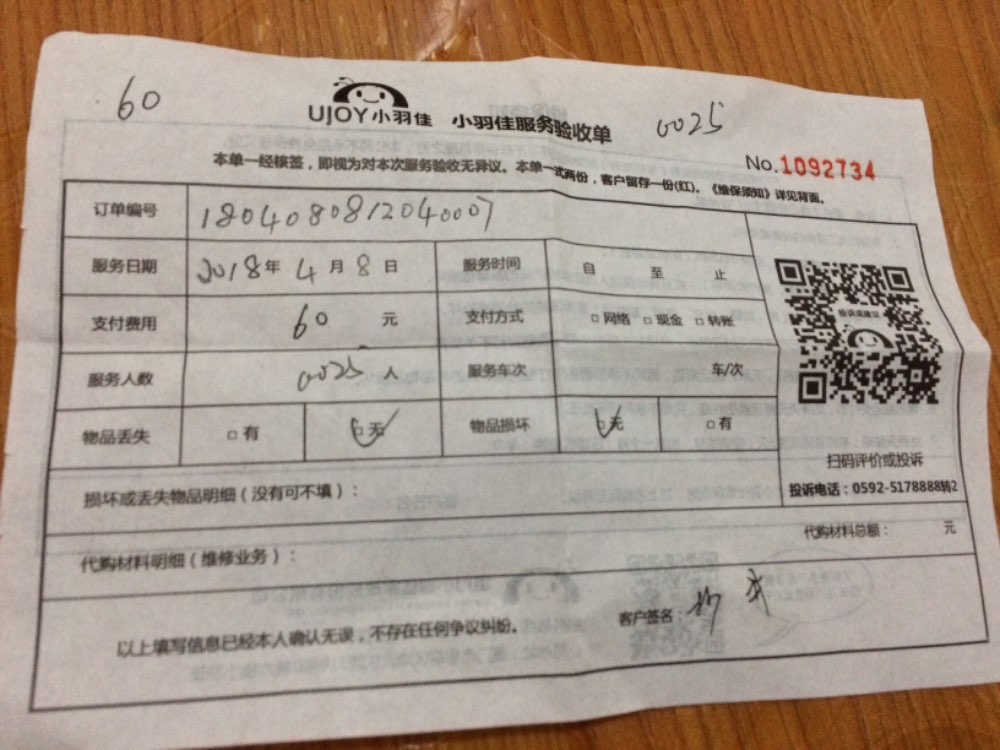 60
UJOY 小羽佳 小羽佳服务验收单 0025
本单一经核签，即视为对本次服务验收无异议。本单一式两份，客户留存一份(红)。《维保须知》详见背面。
No.1092734
订单编号 1804080812040007
服务日期 2018年 4 月 8 日 服务时间 自 至 止
支付费用 60 元 支付方式 □ 网络 □ 现金 □ 转账
服务人数 0025 人 服务车次 车/次
物品丢失 □ 有 □ 无 物品损坏 □ 无 □ 有
投诉或建议
扫码评价或投诉
投诉电话：0592-5178888转2
损坏或丢失物品明细（没有可不填）：
代购材料明细（维修业务）：
代购材料总额： 元
以上填写信息已经本人确认无误，不存在任何争议纠纷。 客户签名：